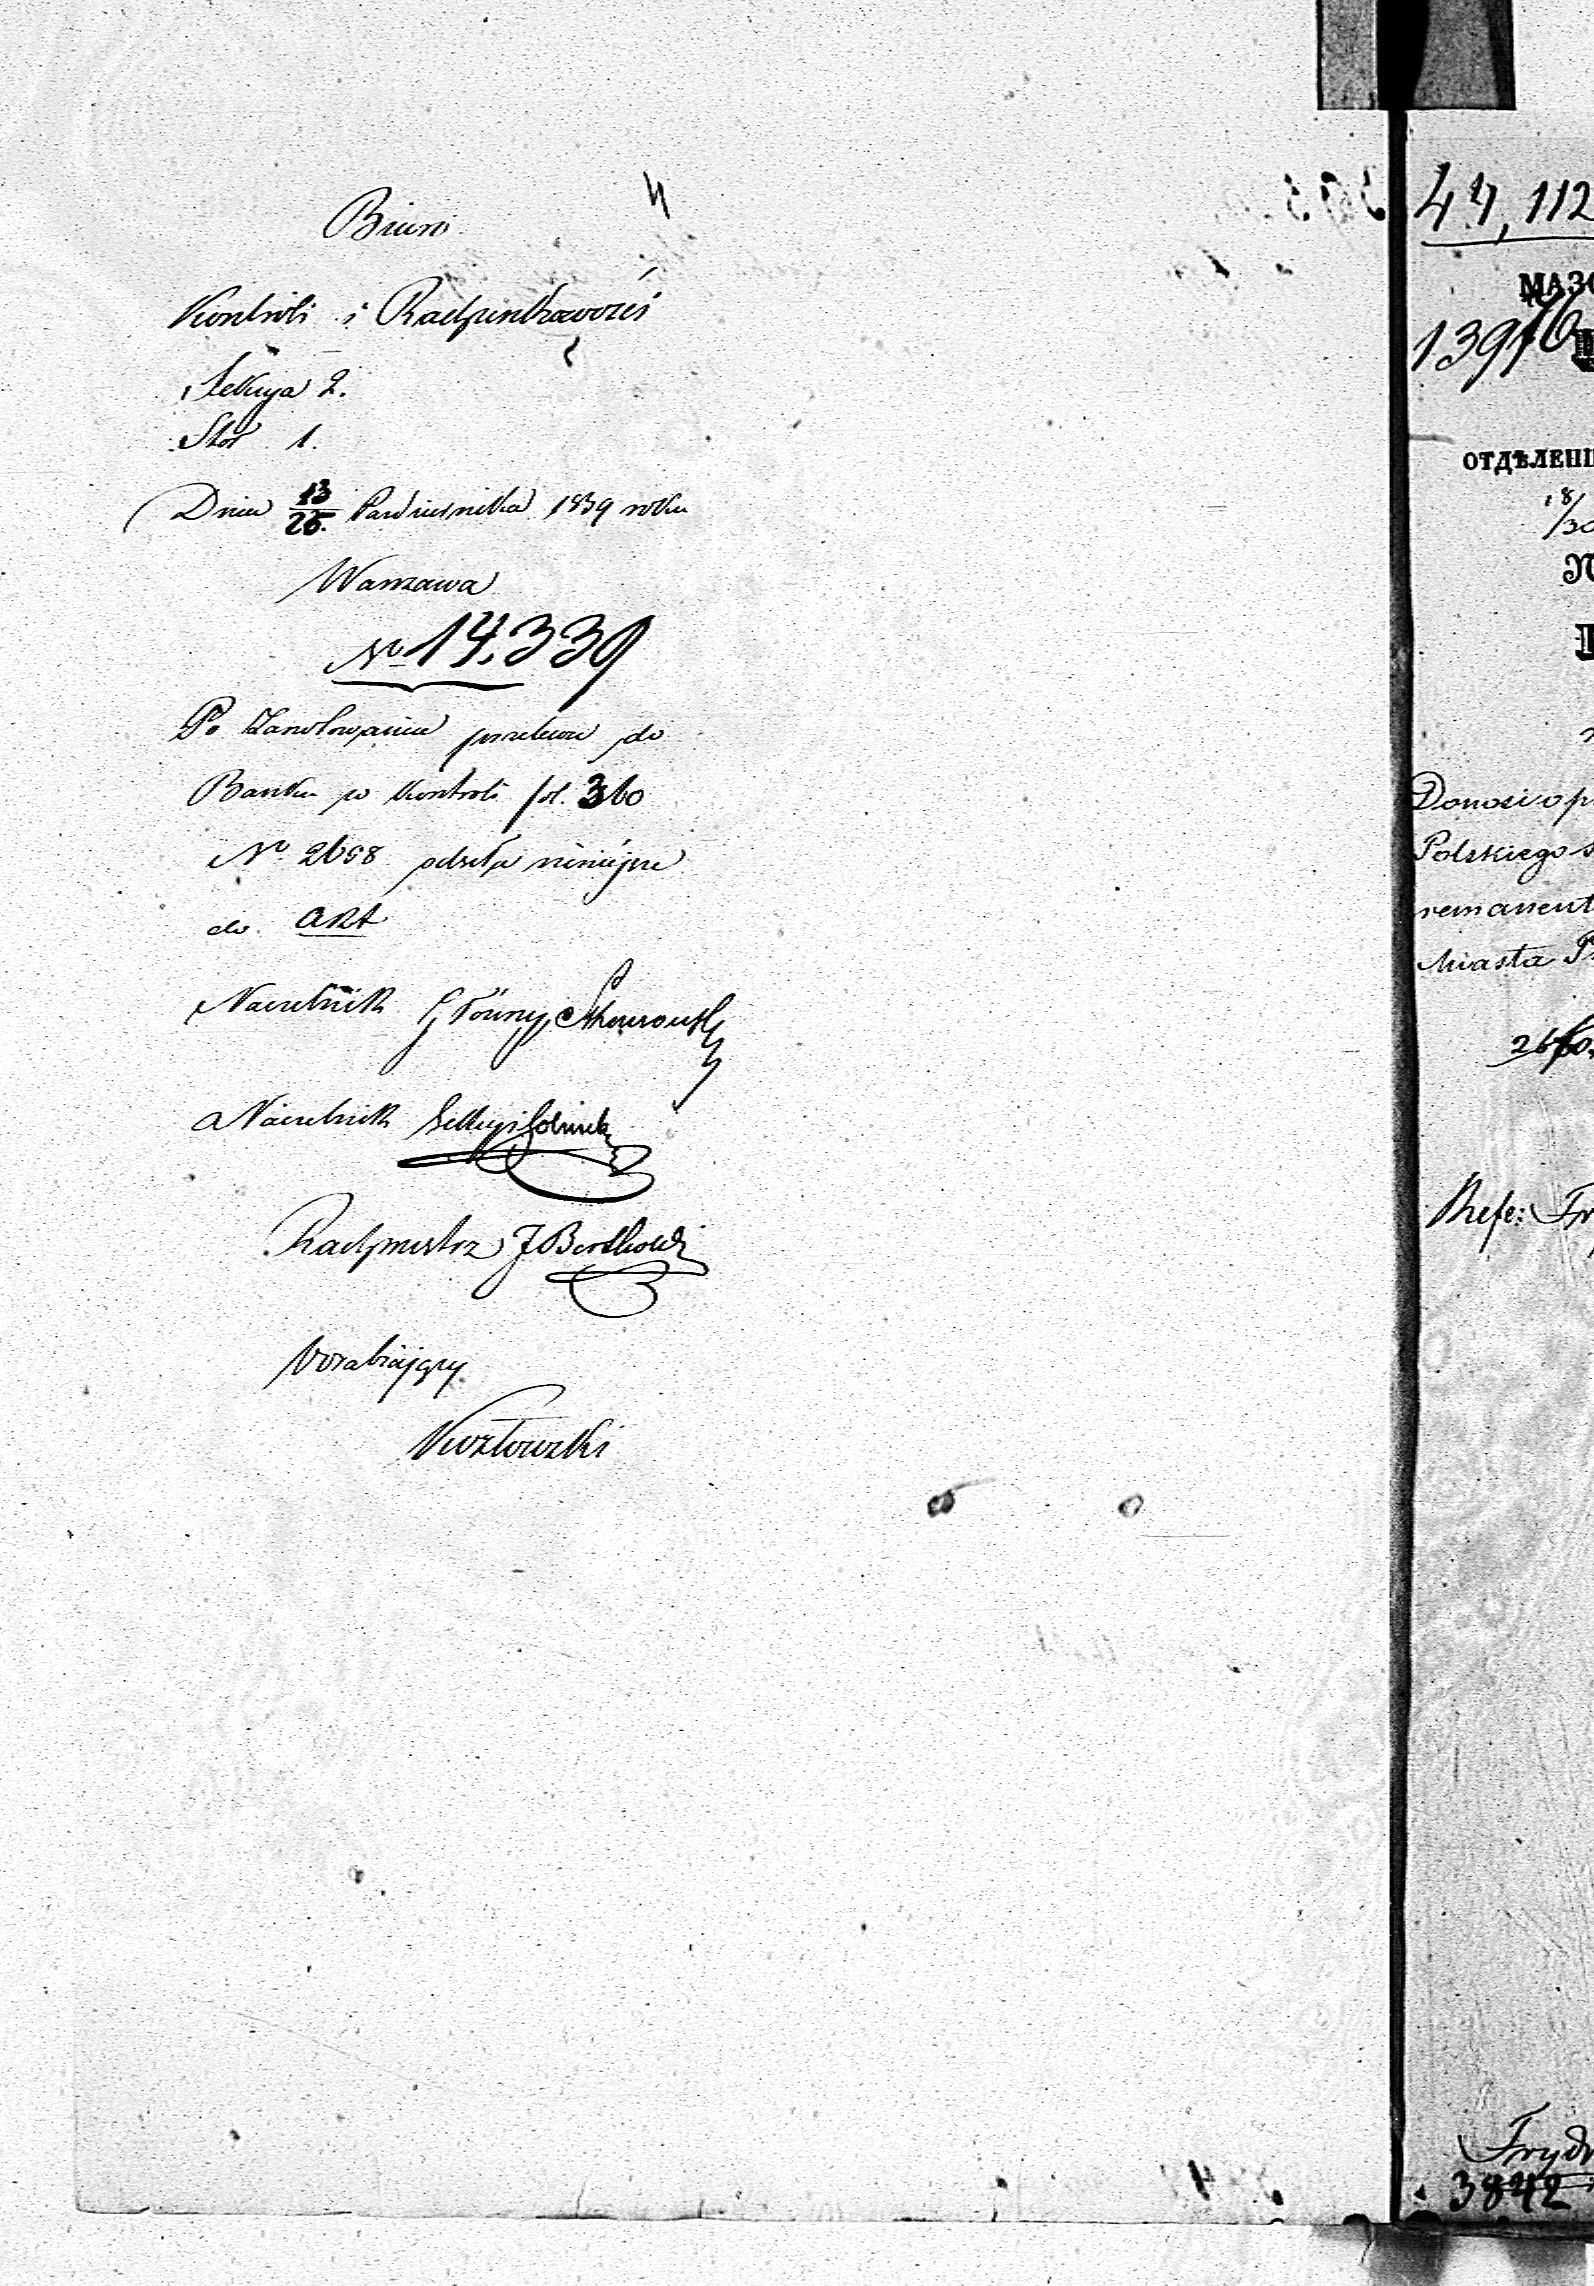 4
Biuro
Kontroli i Rachunkowości
Sekcya 2.
Stół 1.
Dnia 13/25. Października 1839 roku
Warszawa
No 14,339
Po zanotowaniu przelewu do
Banku w Kontroli fol. 360
No. 2658 odsyła niniejsze
do akt
Naczelnik Główny
Naczelnik Sekcyi
Rachmistrz J Berthold
Wyrabiający
Kozłowski
44,112
МАЗО
13976
ОТДѢЛЕНІ
18/30
Donosi o p
Polskiego
remanent
Miasta
Refe: Fry
Fryd
3842